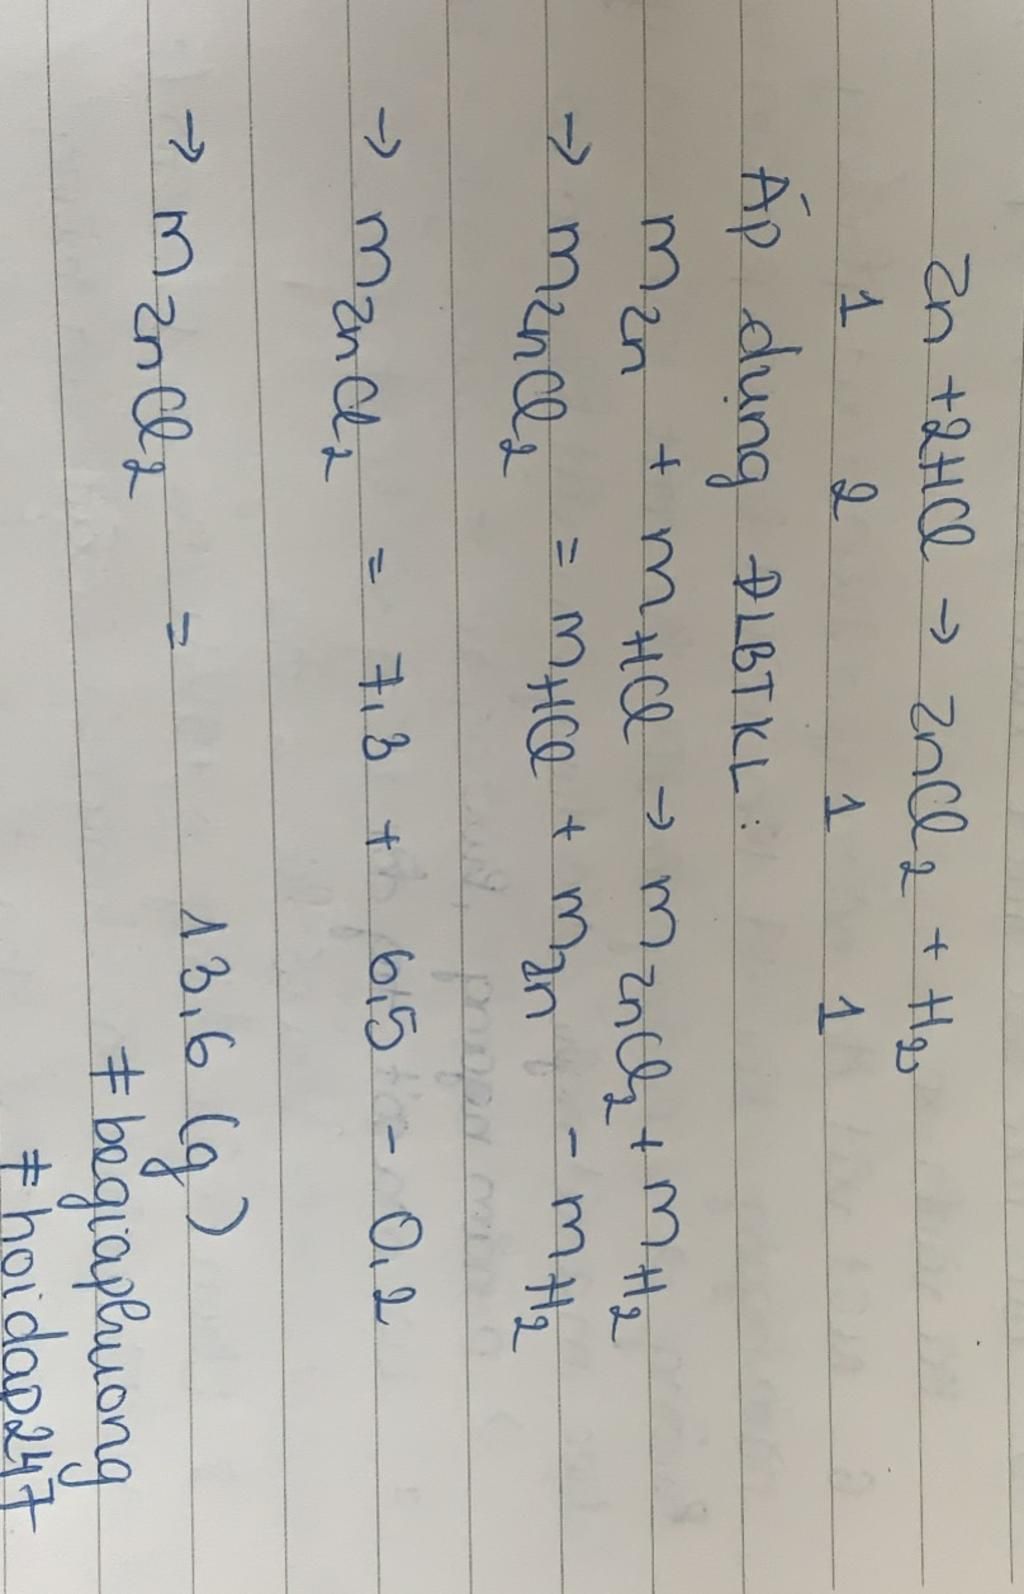 Zn + 2HCl → ZnCl₂ + H₂
1 2 1 1
Áp dụng ĐLBTKL :
m Zn + m HCl → m ZnCl₂ + m H₂
→ m ZnCl₂ = m HCl + m Zn - m H₂
→ m ZnCl₂ = 7,3 + 6,5 - 0,2
→ m ZnCl₂ = 13,6 (g)
# begiaphuong
# hoidap247